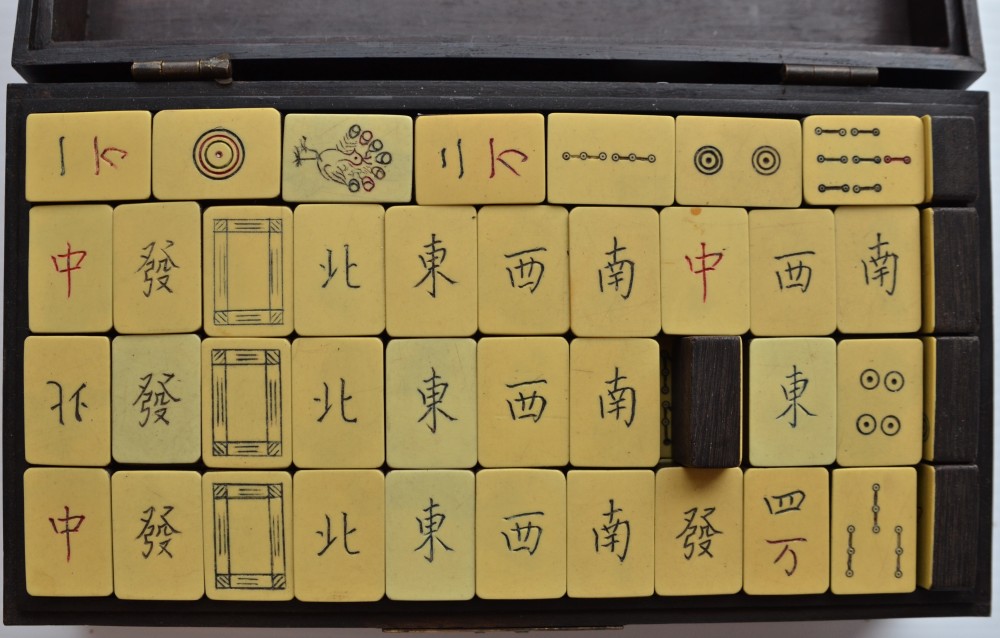 一万 二万
中 發 北 東 西 南 中 西 南
北 發 北 東 西 南 東
中 發 北 東 西 南 發 四万